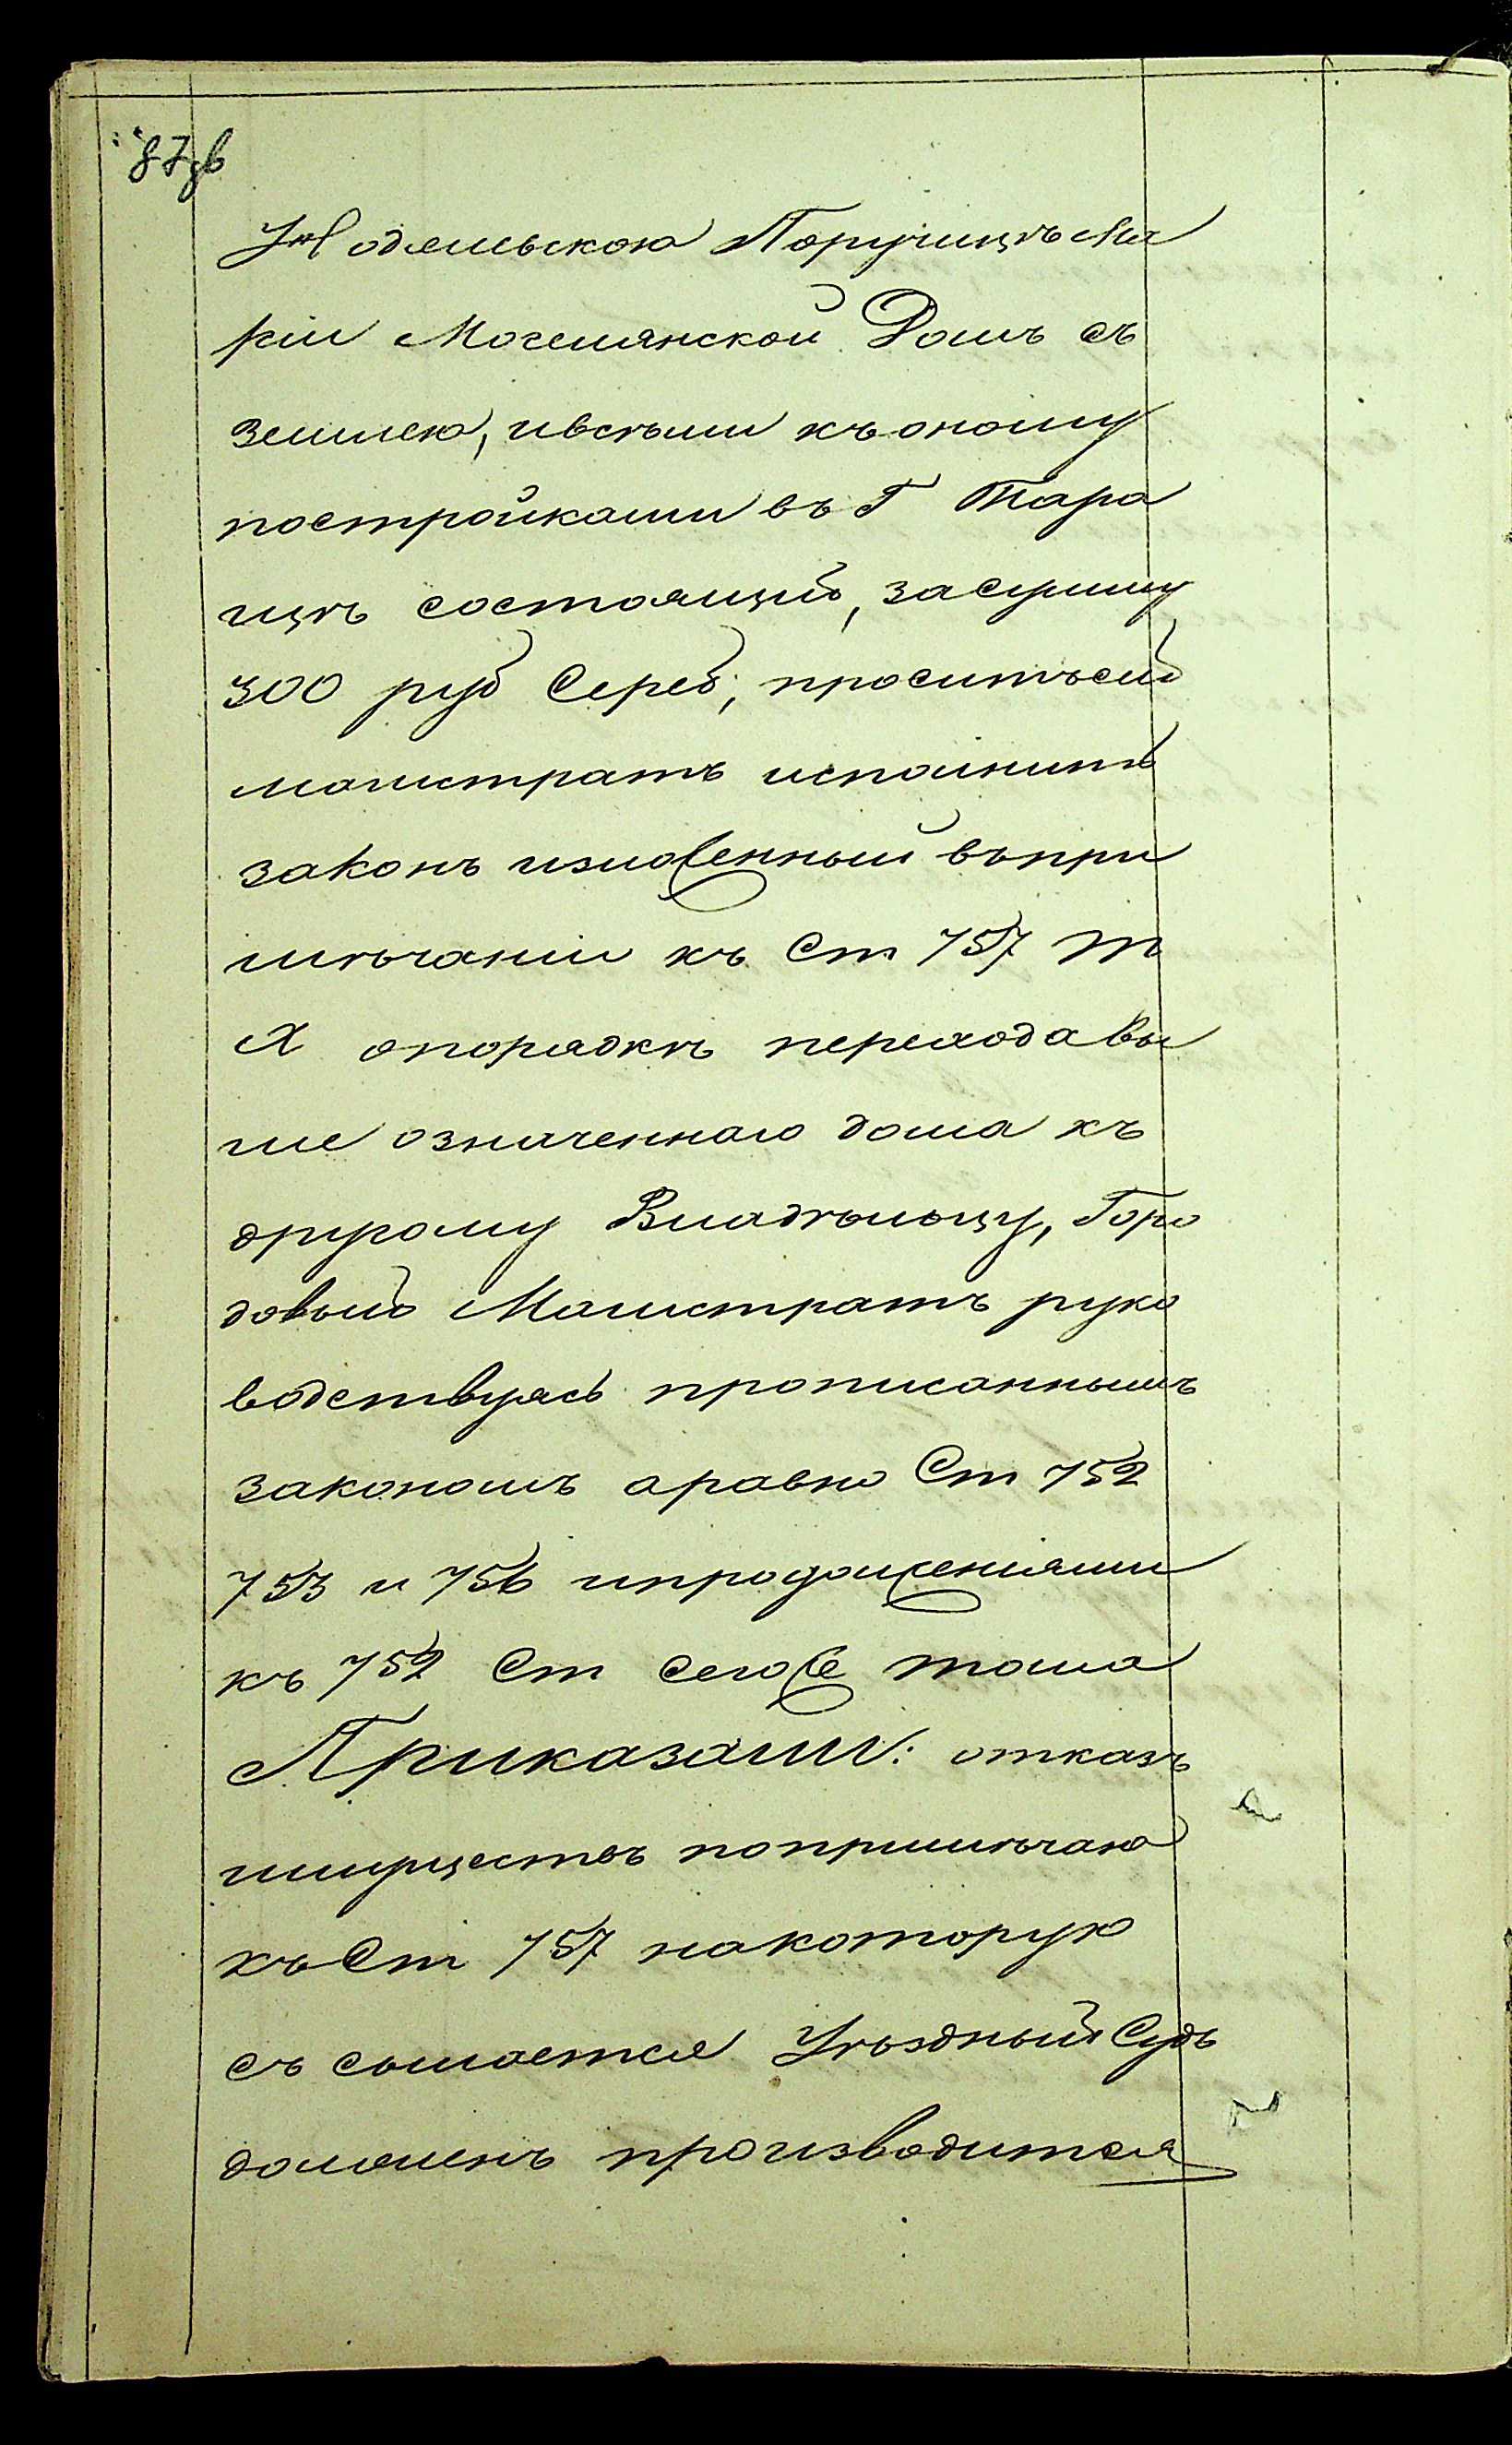 87зв
Жодельскою Поручицѣ Ма
ріи Мочемянской Домъ съ
землею, ивсѣми къ оному
постройками въ Г Тара
щѣ состоящій, засумму
300 руб Сереб; проситъ сей
магистратъ исполнить
законъ изложенный въпри
мѣчаніи къ Ст 757 Т
Х опорядкѣ перехода вы
ше означеннаго дома къ
другому Владѣльцу, Горо
довый Магистратъ руко
водствуясь прописаннымъ
закономъ аравно Ст 752
753 и 756 ипродолженіями
къ 752 Ст сегоже тома
Приказали: отказъ
имуществъ попримѣчаню
къ Ст 757 накоторую
съ сылается Уѣздный Судъ
долженъ производится